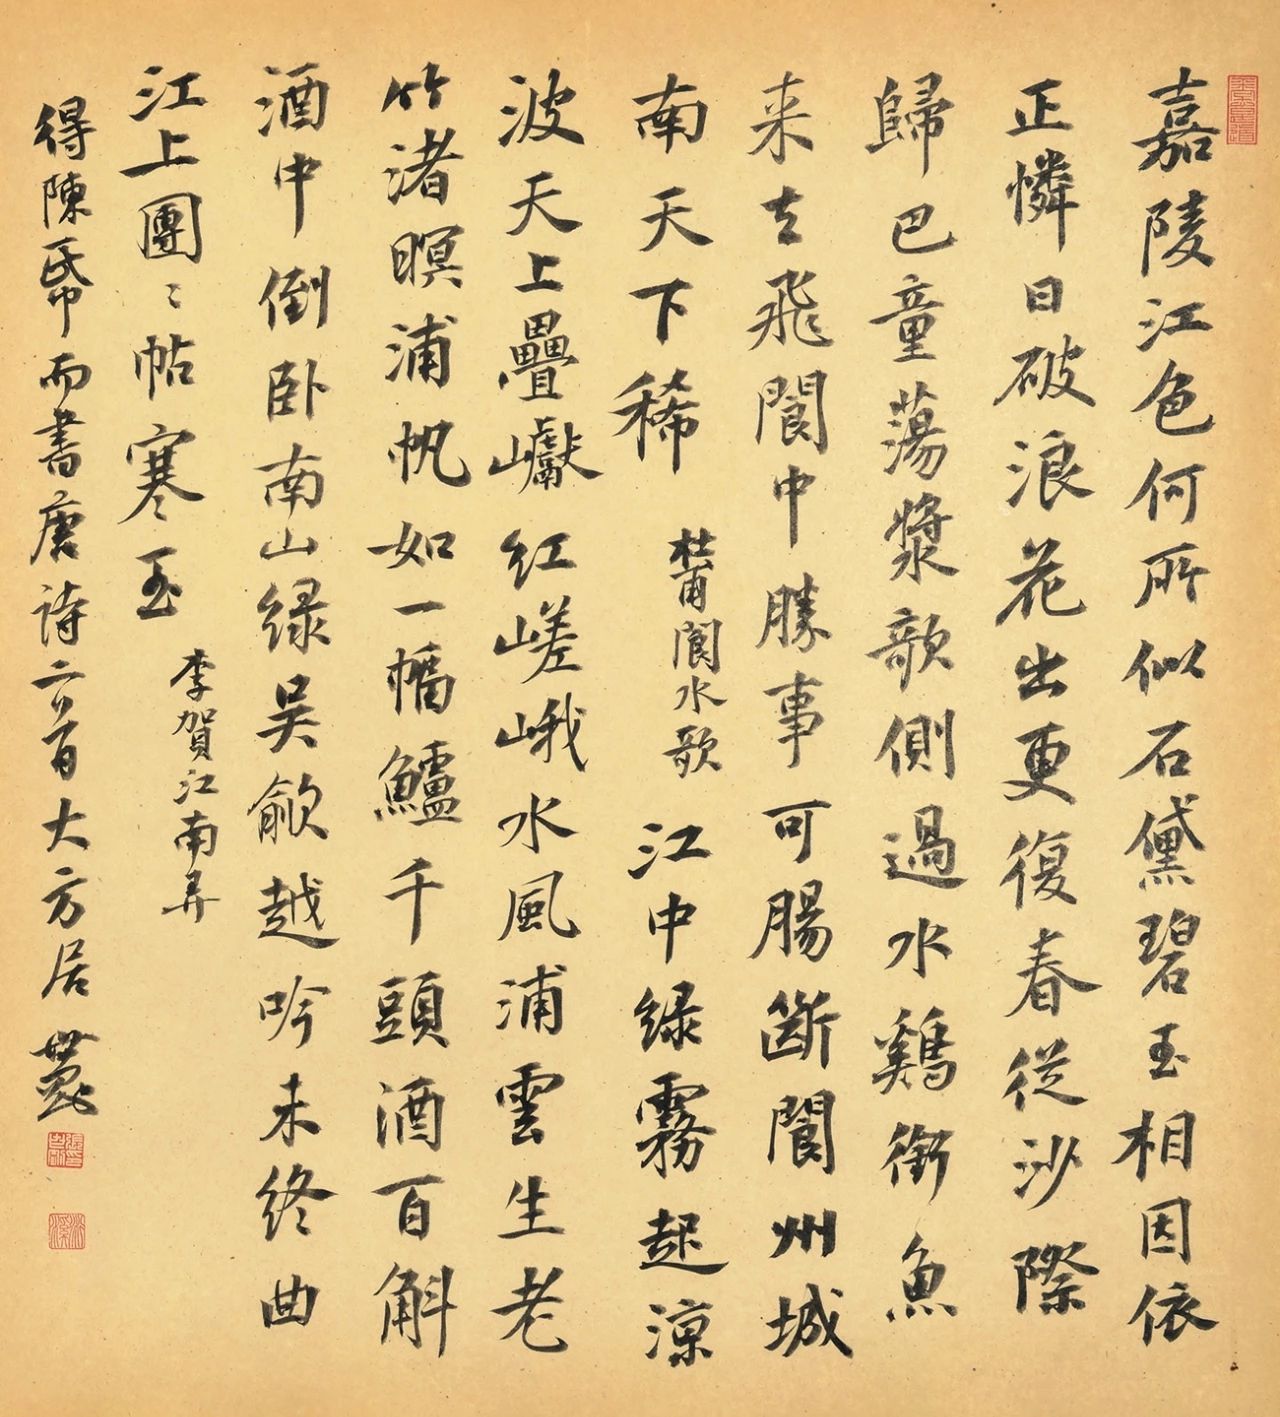 嘉陵江色何所似石黛碧玉相因依
正憐日破浪花出更復春從沙際
歸巴童蕩槳歌側過水鷄銜魚
来去飛閬中勝事可腸斷閬州城
南天下稀
杜甫閬水歌
江中绿霧起涼
波天上疊巘红嵯峨水風浦雲生老
竹渚暝浦帆如一幅鱸千頭酒百斛
酒中倒卧南山绿吴歈越吟未终曲
江上團〻帖寒玉
李賀江南弄
得陳帋而書唐詩二首大方居